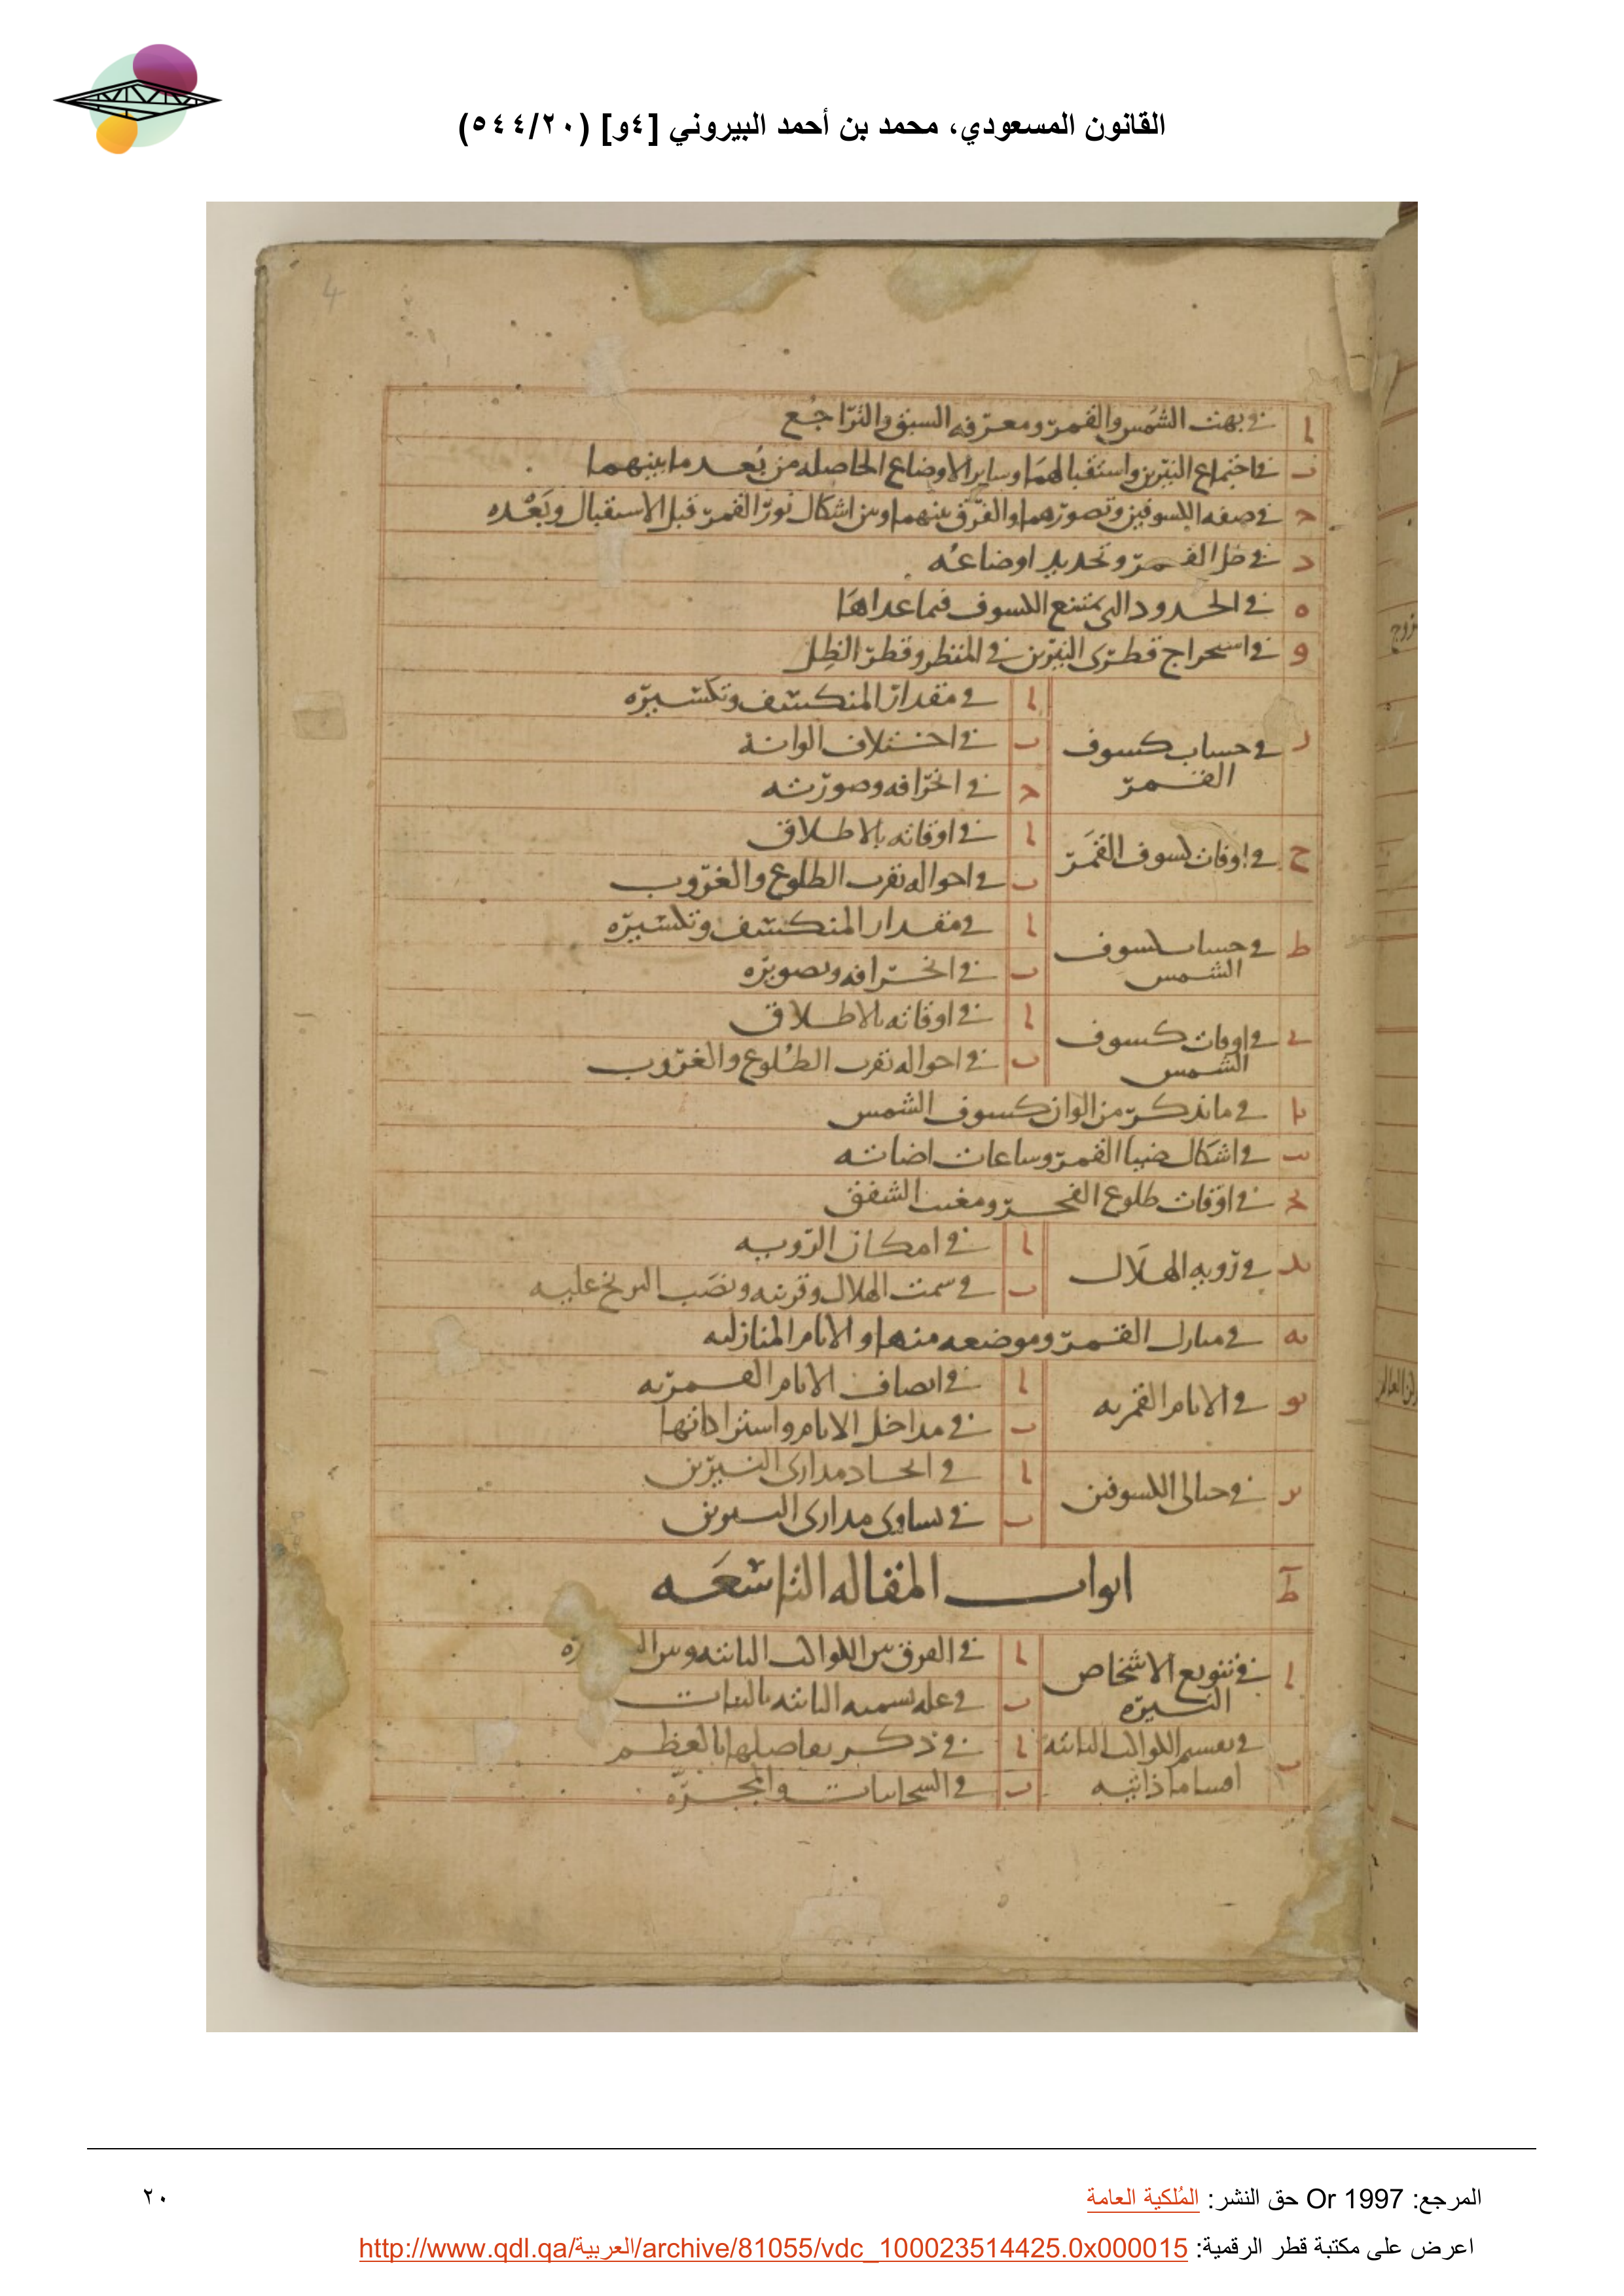 القانون المسعودي، محمد بن أحمد البيروني [٤و] (٥٤٤/٢٠)
4
ا في بهت الشمس والقمر ومعرفه السبق والتراجع
ب في اجتماع النيرين واستقبالهما وساير الاوضاع الحاصله من بعد ما بينهما
ج في صفه الكسوفين وتصورهما والفرق بينهما وبين اشكال نور القمر قبل الاستقبال وبعده
د في ظل القمر وتحديد اوضاعه
ه في الحدود التي يمتنع الكسوف فيما عداها
و في استخراج قطري النيرين في المنظر وقطر الظل
ز في حساب كسوف القمر
ا في مقدار المنكسف وتكسيره
ب في اختلاف الوانه
ج في انحرافه وصورته
ح في اوقات كسوف القمر
ا في اوقاته بالاطلاق
ب في احواله بقرب الطلوع والغروب
ط في حساب كسوف الشمس
ا في مقدار المنكسف وتكسيره
ب في انحرافه وتصويره
ي في اوقات كسوف الشمس
ا في اوقاته بالاطلاق
ب في احواله بقرب الطلوع والغروب
يا في ما نذكر من الوان كسوف الشمس
يب في اشكال ضيا القمر وساعات اضاته
يج في اوقات طلوع الفجر ومغيب الشفق
يد في رويه الهلال
ا في امكان الرويه
ب في سمت الهلال وقرنيه ونصب البربخ عليه
يه في منازل القمر وموضعه منها والايام المنازليه
يو في الايام القمريه
ا في انصاف الايام القمريه
ب في مداخل الايام واستراداتها
يز في حيالي الكسوفين
ا في اتحاد مداري النيرين
ب في تساوي مداري النيرين
ط ابواب المقاله التاسعه
ا في تنويع الاشخاص النيره
ا في الفرق بين الكواكب الثابته وبين
ب في عله تسميه الثابته بالثبات
ب في تقسيم الكواكب الثابته اقساما ذاتيه
ا في ذكر تفاصيلها بالعظم
ب في السحابيات والمجره
المرجع: Or 1997 حق النشر: المُلكية العامة
٢٠
اعرض على مكتبة قطر الرقمية: http://www.qdl.qa/العربية/archive/81055/vdc_100023514425.0x000015